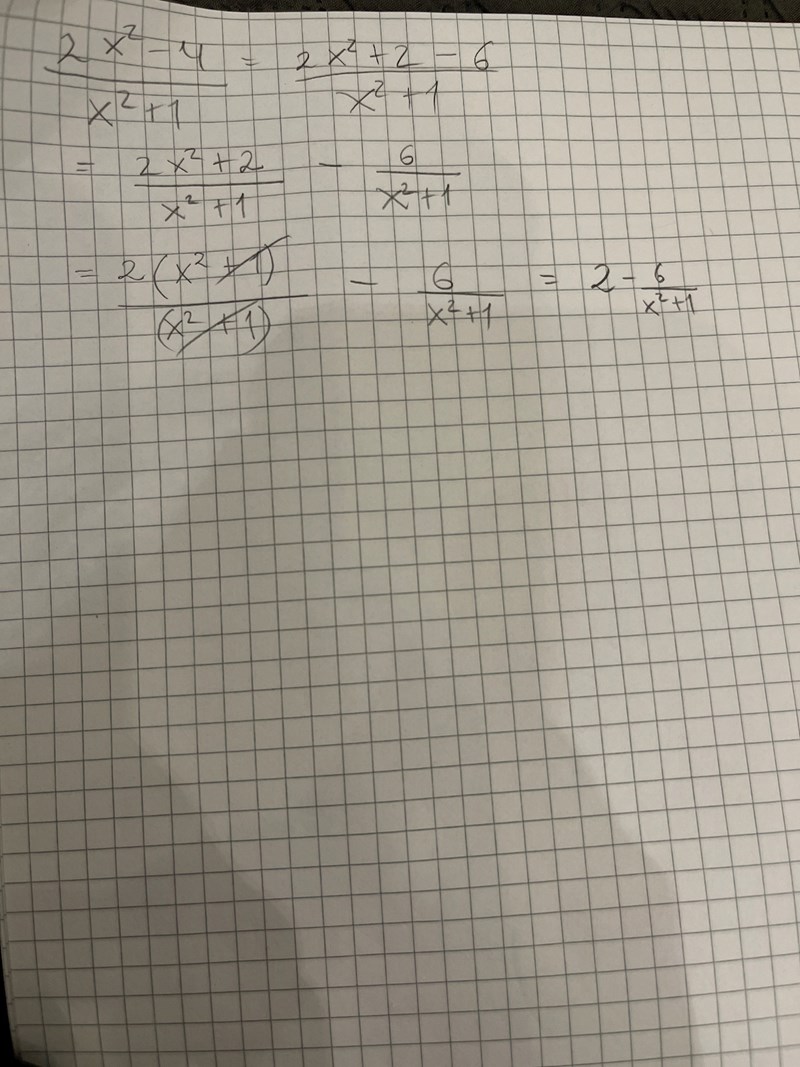 2x²-4/x²+1 = 2x²+2-6/x²+1
= 2x²+2/x²+1 - 6/x²+1
= 2(x²+1)/(x²+1) - 6/x²+1 = 2-6/x²+1